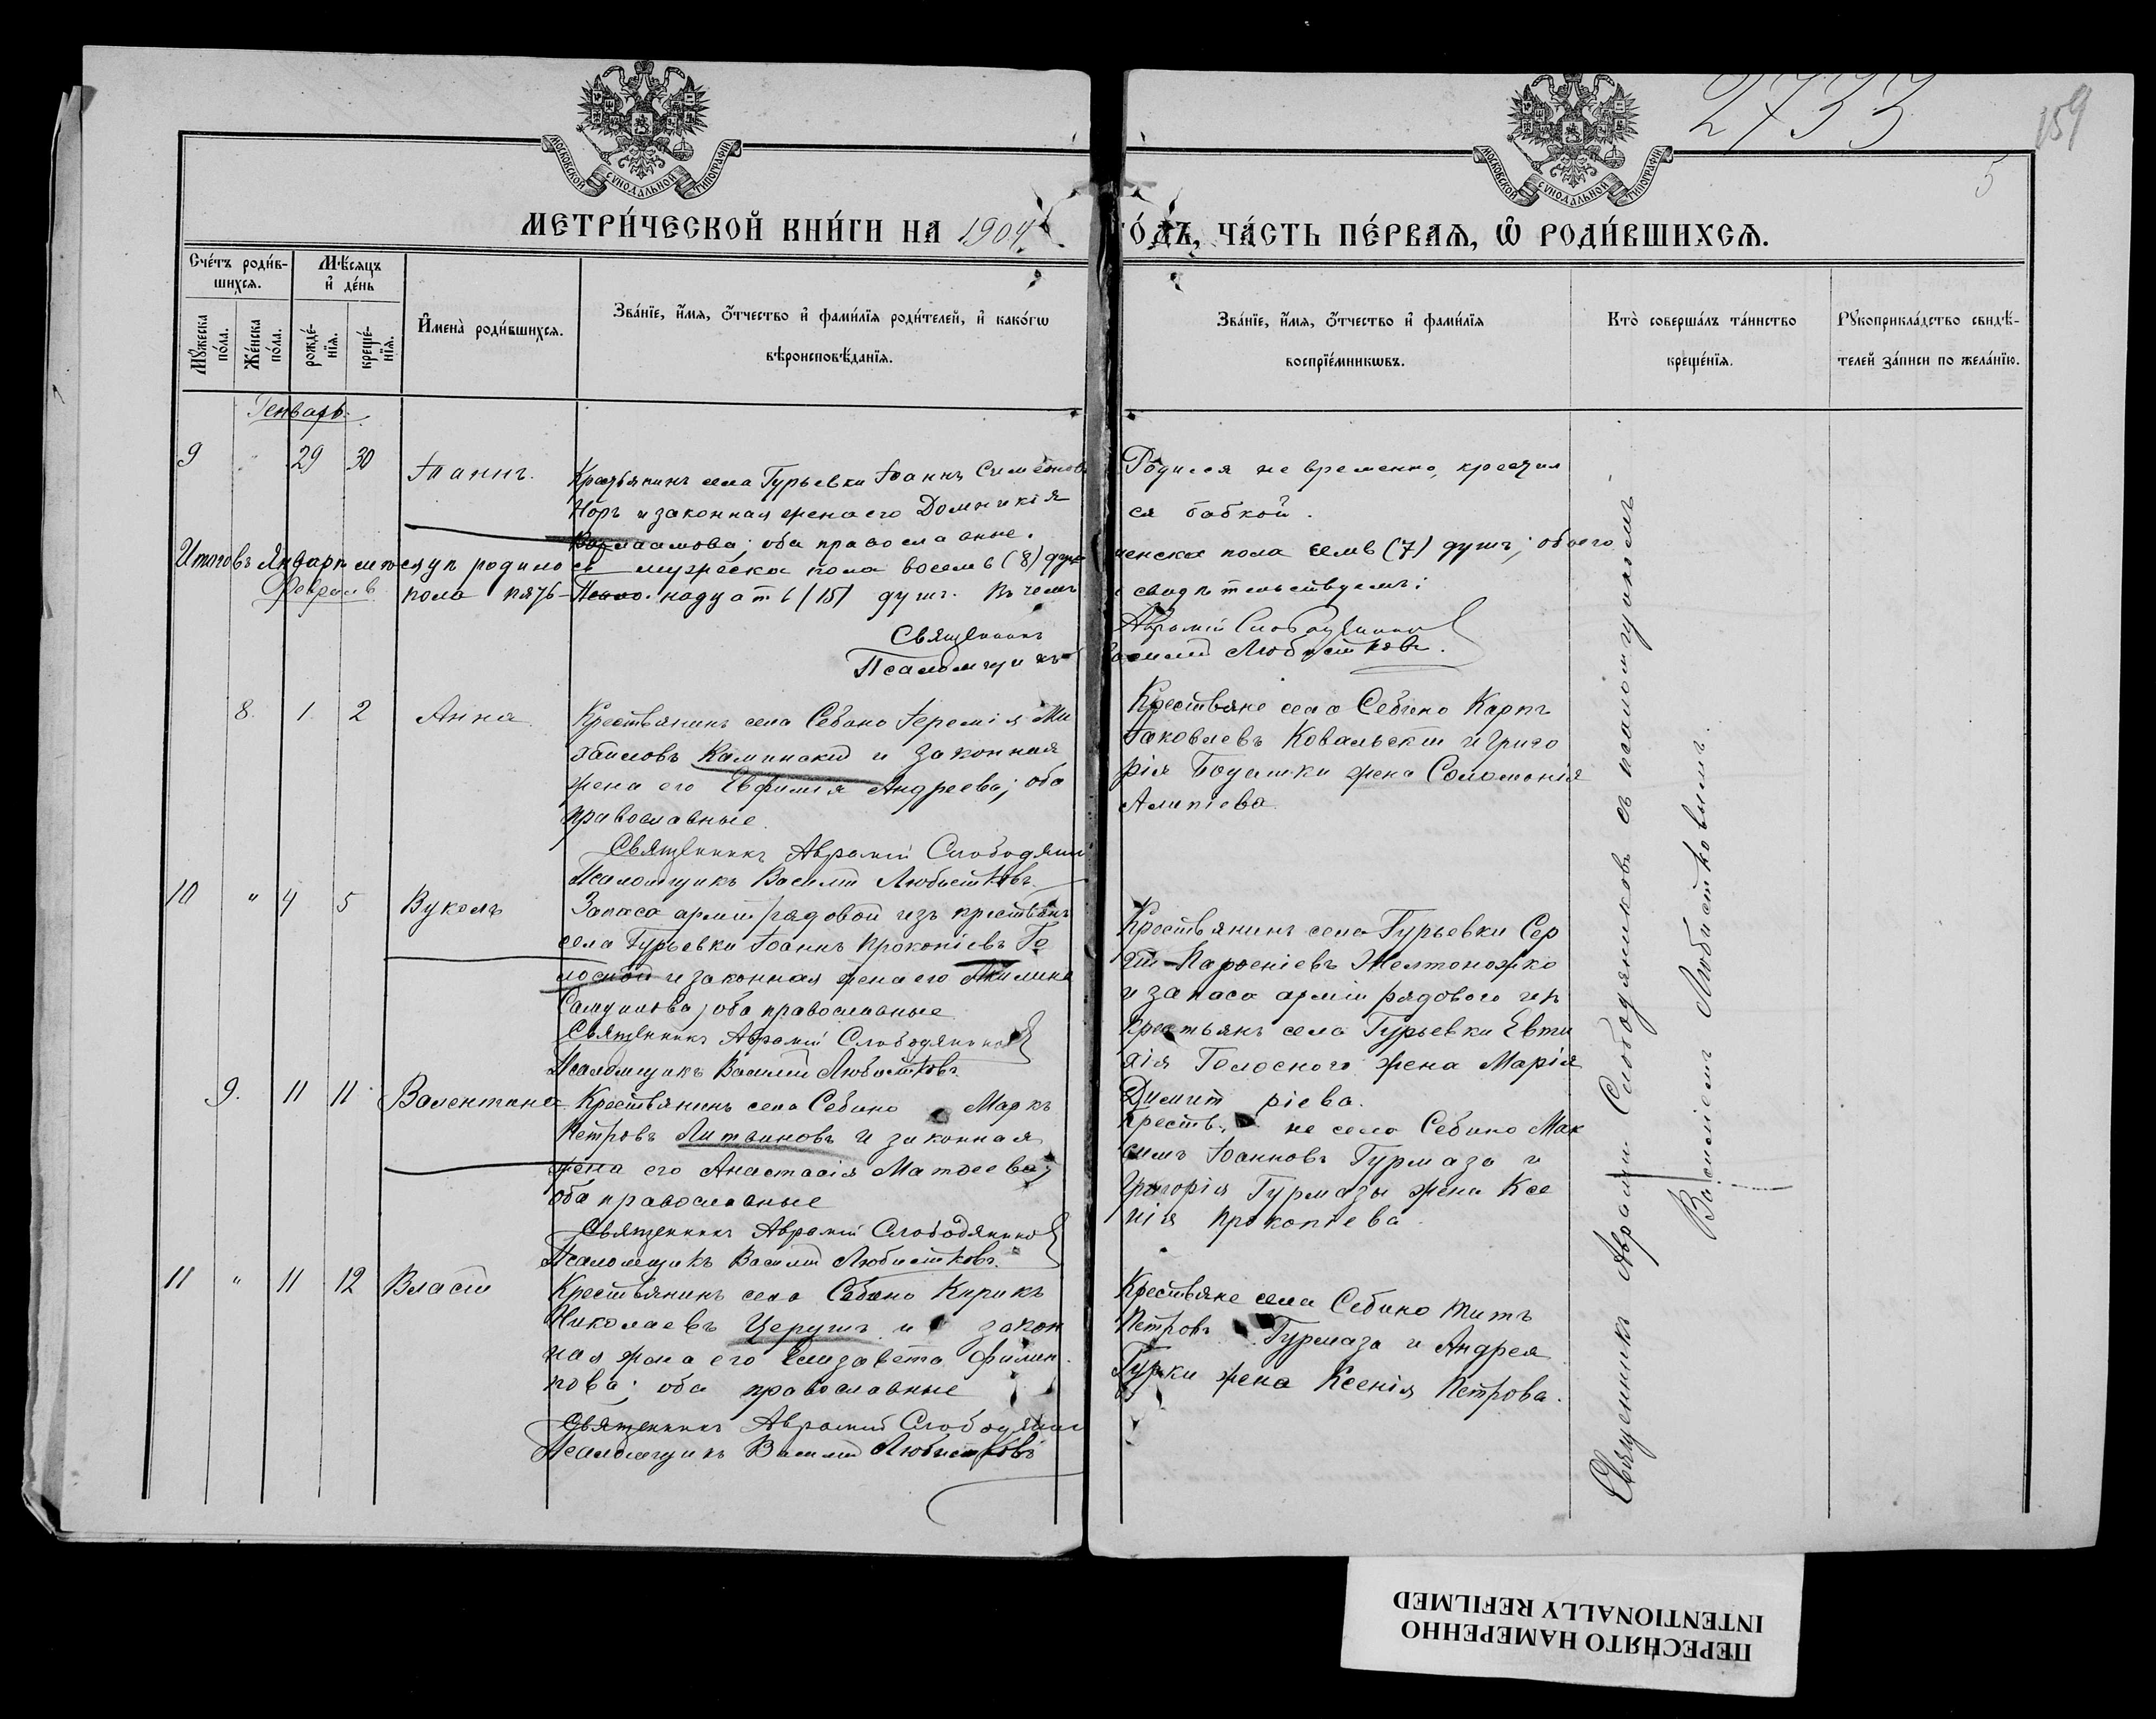 2733
159
5
МОСКОВСКОЙ СѴНОДАЛЬНОЙ ТИПОГРАФІИ
МОСКОВСКОЙ СѴНОДАЛЬНОЙ ТИПОГРАФІИ
МЕТРИ́ЧЕСКОЙ КНИ́ГИ НА 1904 ГО́ДЪ, ЧА́СТЬ ПЕ́РВАЯ, Ѡ҆ РОДИ́ВШИХСЯ.
Сче́тъ роди́в-
шихся.
Мѣ́сяцъ
и҆ де́нь
Мꙋ́жеска по́ла.
Же́нска по́ла.
рожде́-
нїя.
креще́-
нїя.
И҆мена̀ роди́вшихся.
Зва́нїе, и҆́мя, ѻ҆́тчество и҆ фами́лїя роди́телей, и҆ како́гѡ
вѣроисповѣ́данїя.
Зва́нїе, и҆́мя, ѻ҆́тчество и҆ фами́лїя
воспрїе́мникѡвъ.
Кто̀ соверша́лъ та́инство
креще́нїя.
Рꙋкоприкла́дство свидѣ́-
телей за́писи по жела́нїю.
Генварь.
9 " 29 30 Іоаннъ.
Крестьянинъ села Гурьевки Іоаннъ Симеонов
Норъ и законная жена его Домникія
Варлаамова; оба православные.
Родился не временно, крестил
ся бабкой.
Итого въ Январѣ мѣсяцѣ родилось мужеска пола восемь (8) душ женска пола семь (7) душъ; обоего
Февраль
пола пять надцать (15) душъ. Въ чемъ свидѣтельствуемъ:
Священникъ Аврамій Слободяник
Псаломщикъ Василій Любистковъ.
8. 1 2 Анна.
Крестьянинъ села Себино Іеремія Ми
хаиловъ Каминскій и законная
жена его Евфимія Андреева; оба
православные.
Священникъ Аврамій Слободяник
Псаломщикъ Василій Любистковъ
Крестьяне села Себино Карпъ
Іаковлевъ Ковальскій и Григо
рія жена Соломонія
Алипіева
10 " 4 5 Вуколъ
Запаса арміи рядовой изъ крестьянъ
села Гурьевки Іоаннъ Прокопіевъ Го
лосной и законная жена его Акилина
Самуилова; оба православные
Священникъ Аврамій Слободяников
Псаломщикъ Василій Любистковъ
Крестьянинъ села Гурьевки Сер
гій Парѳеніевъ Желтоножко
и запаса арміи рядового изъ
крестьянъ села Гурьевки Евти
хія Голосного жена Марія
Димит ріева.
9. 11 11 Валентина
Крестьянинъ села Себино Маркъ
Петровъ Литвиновъ и законная
жена его Анастасія Матѳеева;
оба православные
Священникъ Аврамій Слободяников
Псаломщикъ Василій Любистковъ.
Крестья не села Себино Мак
симъ Іоанновъ Гурмаза и
Григорія Гурмазы жена Ксе
нія Прокопіева.
11 " 11 12 Власій
Крестьянинъ села Себино Кирикъ
Николаевъ Церушъ и закон
ная жена его Елизавета Филип
пова; оба православные
Священникъ Аврамій Слободяник
Псаломщикъ Василій Любистковъ
Крестьяне села Себино Титъ
Петровъ Гурмаза и Андрея
Гурки жена Ксенія Петрова.
Священникъ Аврамій Слободяниковъ съ псаломщикомъ
Василіемъ Любистковымъ.
ПЕРЕСНЯТО НАМЕРЕННО
INTENTIONALLY REFILMED